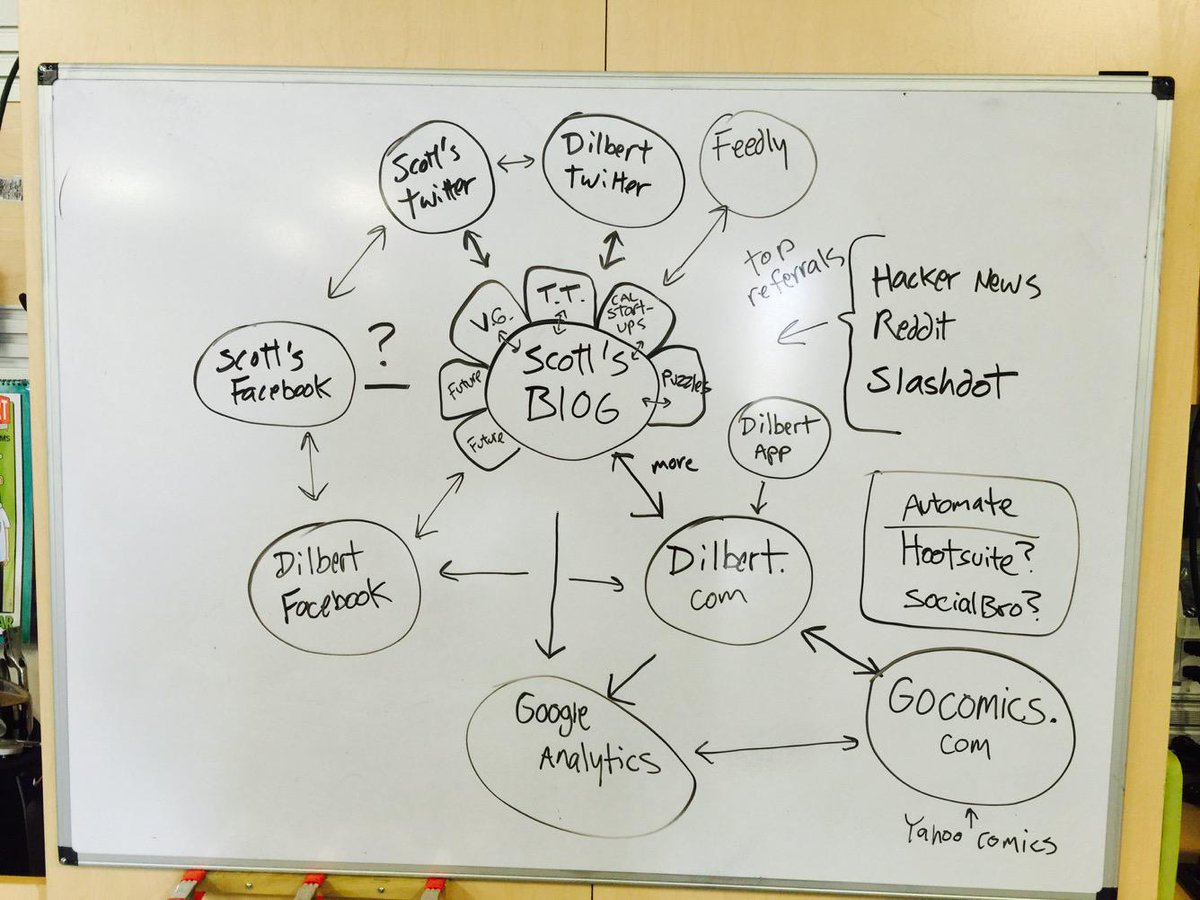 Scott's
twitter
Dilbert
twitter
Feedly
top
referrals
Hacker News
Reddit
Slashdot
V.G.
T.T.
CAL
Start-
ups
Puzzles
Future
Future
Scott's
BLOG
Scott's
Facebook
?
more
Dilbert
App
Automate
Hootsuite?
SocialBro?
Dilbert
Facebook
Dilbert.
com
Google
Analytics
Gocomics.
com
Yahoo comics